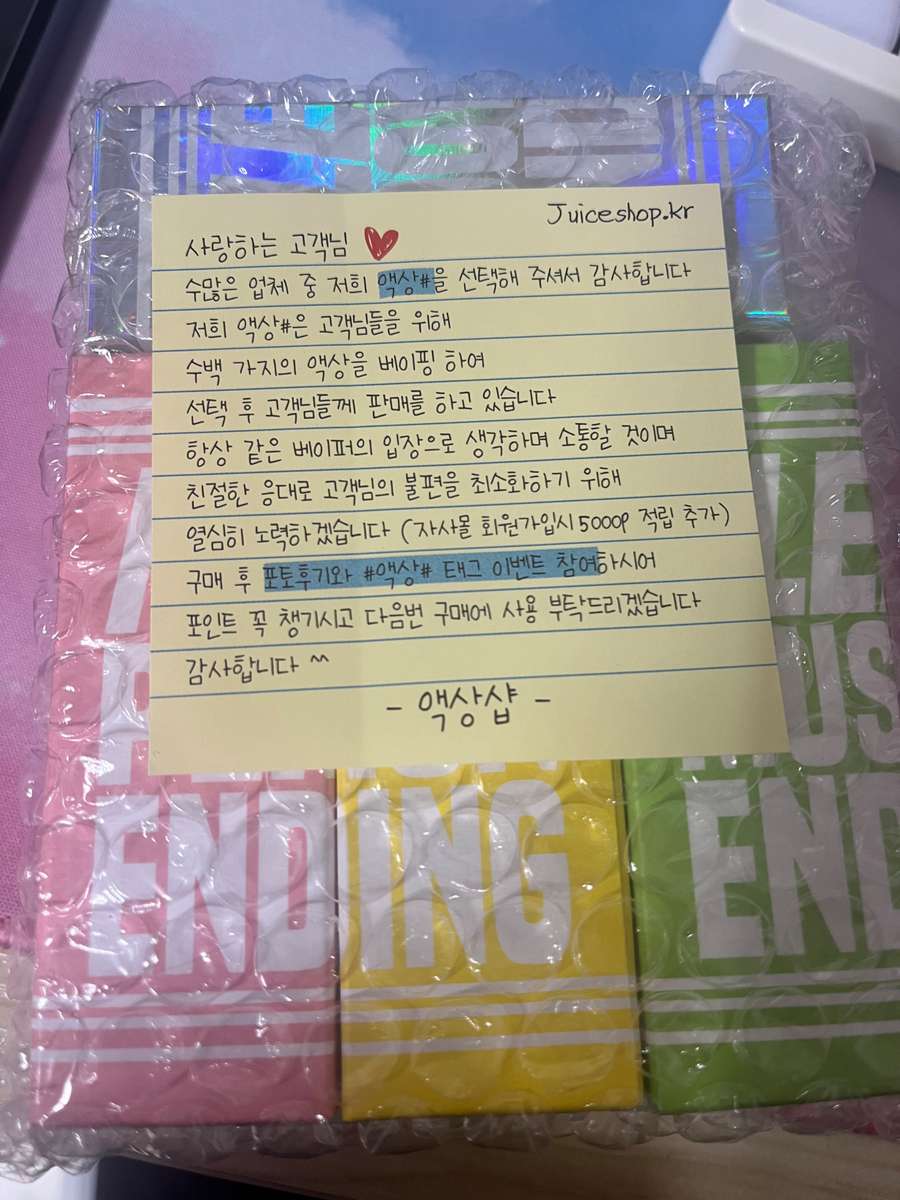 Juiceshop.kr
사랑하는 고객님
수많은 업체 중 저희 액상#을 선택해 주셔서 감사합니다
저희 액상#은 고객님들을 위해
수백 가지의 액상을 베이핑 하여
선택 후 고객님들께 판매를 하고 있습니다
항상 같은 베이퍼의 입장으로 생각하며 소통할 것이며
친절한 응대로 고객님의 불편을 최소화하기 위해
열심히 노력하겠습니다 (자사몰 회원가입시 5000p 적립 추가)
구매 후 포토후기와 #액상# 태그 이벤트 참여하시어
포인트 꼭 챙기시고 다음번 구매에 사용 부탁드리겠습니다
감사합니다 ^^
- 액상샵 -
ENDING
END